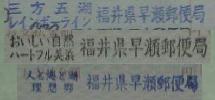 三方五湖
レインボーライン
福井県早瀬郵便局
おいしい自然
ハートフル美浜
福井県早瀬郵便局
人と地と湖
福井県早瀬郵便局